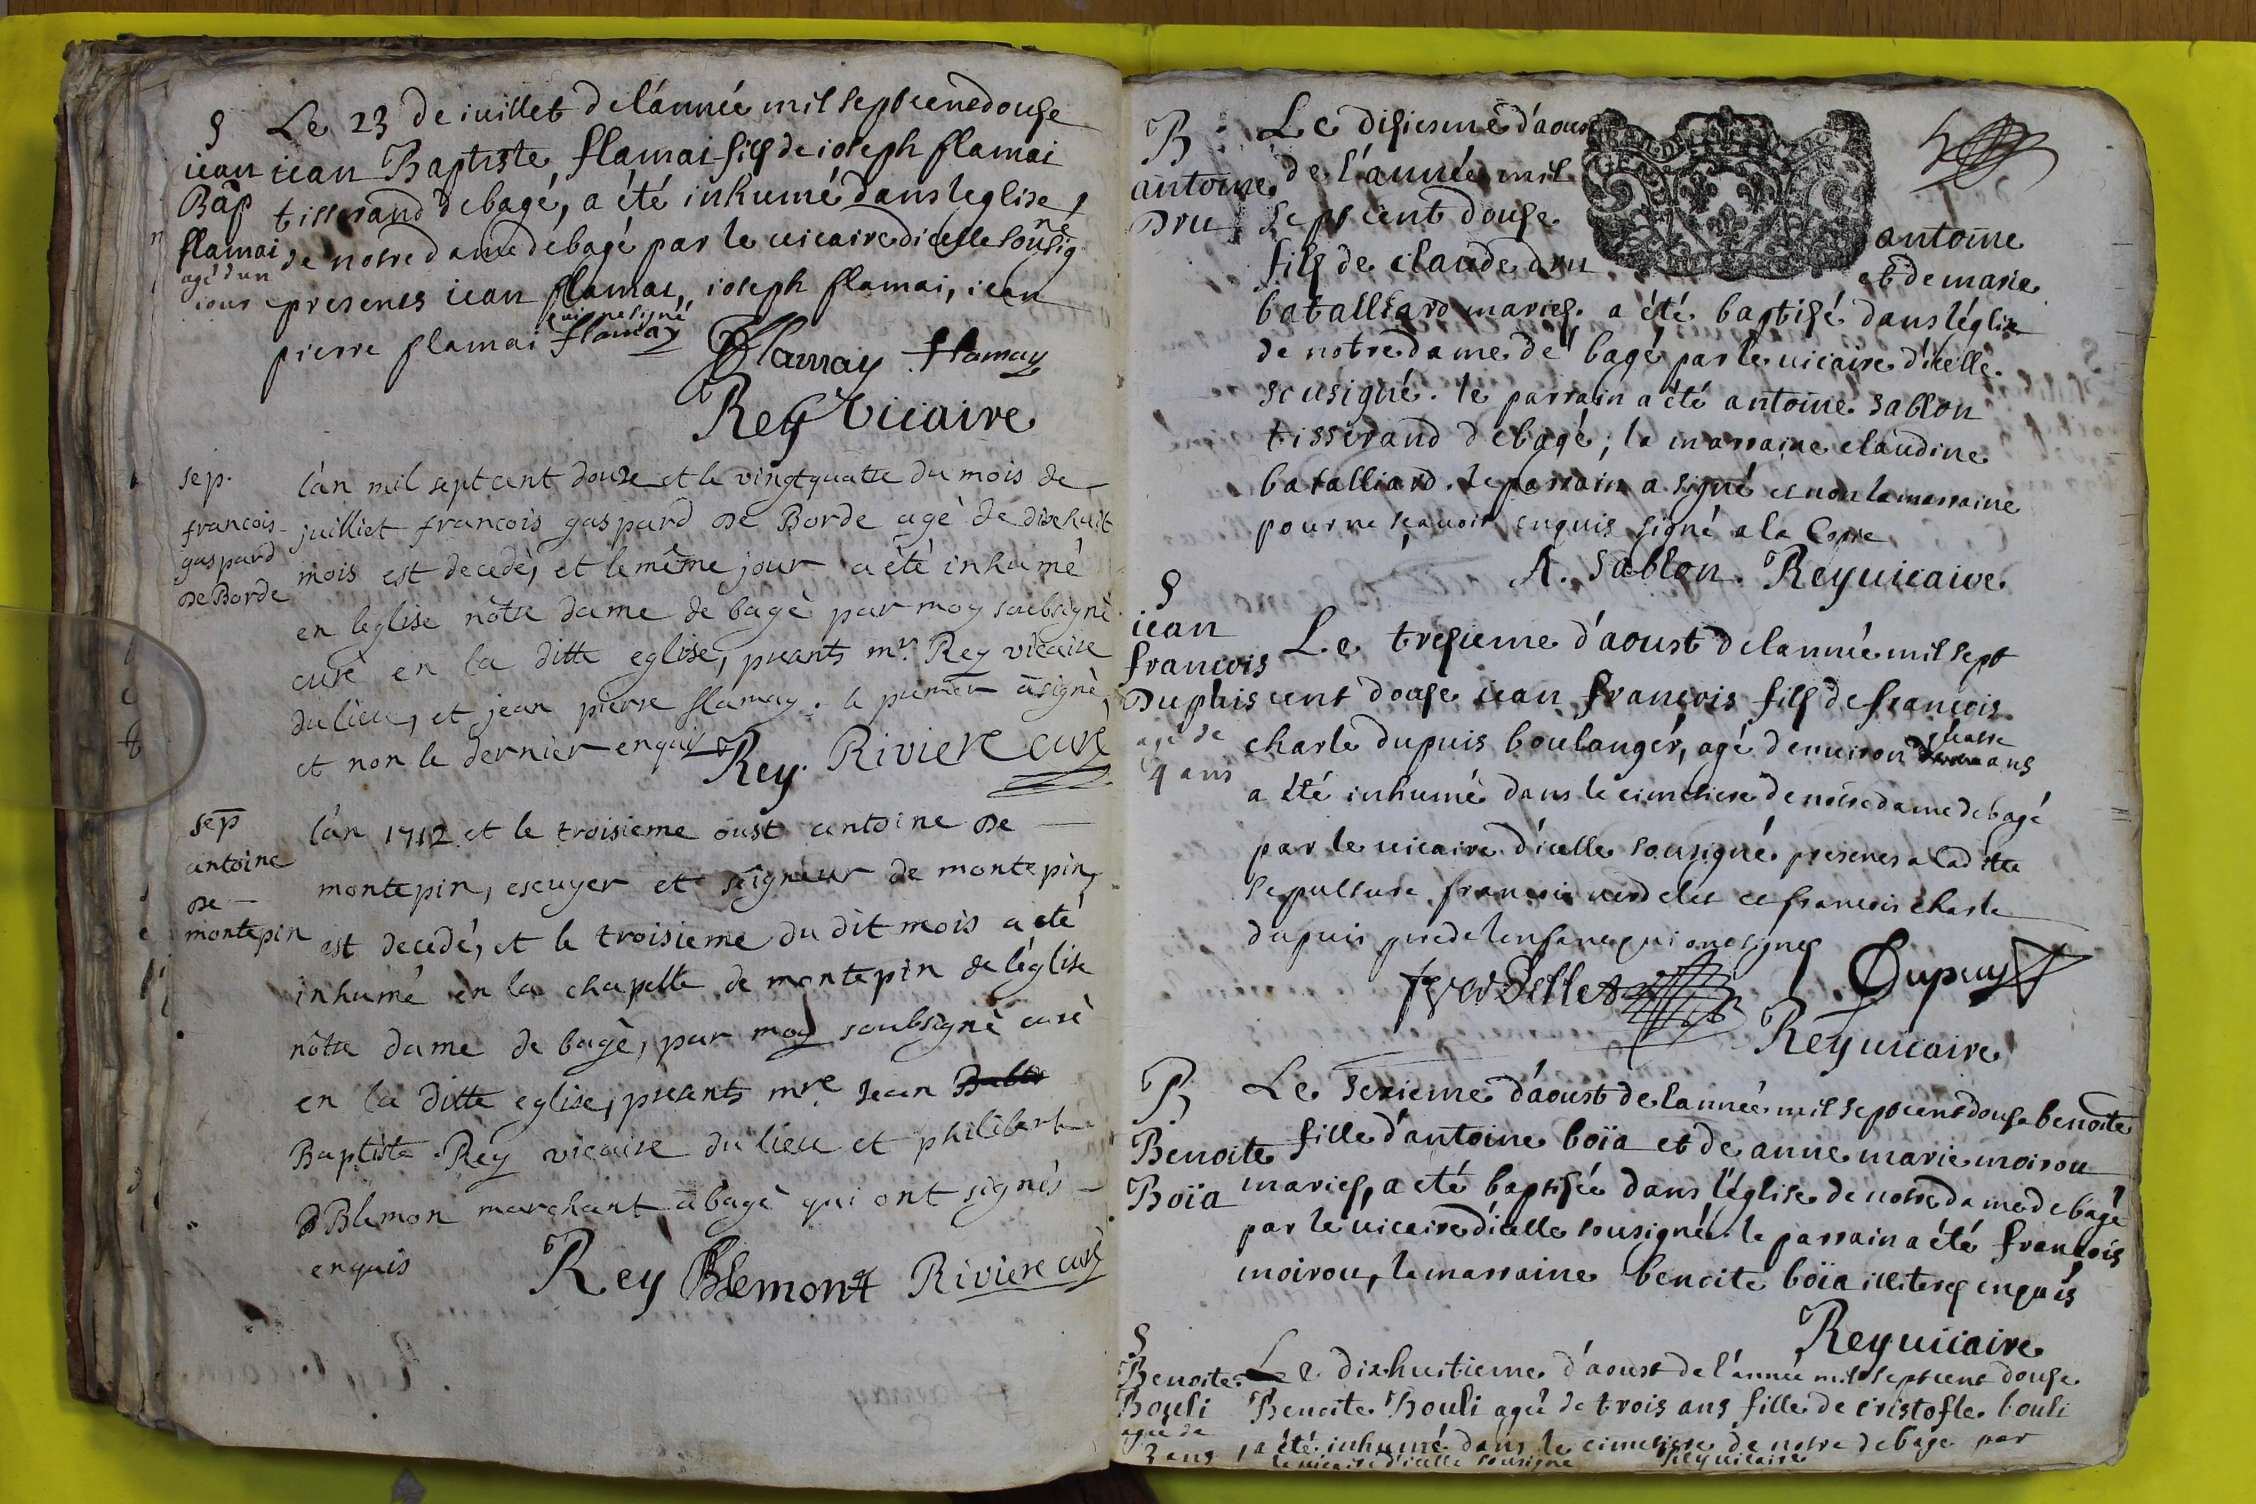 S
iean
Bap
flamai
agé d'un
iour
Le 23 de iuillet de l'année mil sept cent douse
iean Baptiste flamai fils de ioseph flamai
tisserand de bagé, a été inhumé dans leglise
de notre dame de bagé par le vicaire dicelle sousig
né
presents iean flamai, ioseph flamai, iean
pierre flamai flamay Flamay flamay
Rey Vicaire
sep.
francois
gaspard
De Borde
l'an mil sept cent douze et le vingtquatre du mois de
juilliet francois gaspard De Borde agé de dixehuit
mois est decedè, et le même jour a étè inhumè
en leglise nôtre dame de bagè par moy soubsignè
curè en la ditte eglise, pnts mr. Rey vicaire
du lieu, et jean pierre flamay. le premier a signè,
et non le dernier enquis Rey. Riviere curè
sep
antoine
De
montepin
l'an 1712 et le troisieme oust antoine De
montepin, escuyer et seigneur de montepin,
est decedé, et le troisieme du dit mois a eté
inhumé en la chapelle de montepin de léglise
nôtre dame de bagè, par moy soubsignè curè
en la ditte eglise, pnts mre Jean
Baptiste Rey vicaire du lieu et philibert
Blemon marchant a bagè qui ont signès
enquis Rey Blemont Riviere curè
B
antoine
Dru
Le disiesme d'aoust
de l'année mil
sept cent douse antoine
fils de claude dru et de marie
batalliard maries. a été baptisé dans léglise
de notre dame de bagé par le vicaire d'icelle
sousigné. le parrain a été antoine sablon
tisserand de bagé, la marraine claudine
batalliard. le parrain a signé et non la marraine
pour ne sçavoir enquis signé a la Copie
A. Sablon. Rey vicaire
S
iean
francois
Dupuis
agé de
4 ans
Le tresieme d'aoust de lannée mil sept
cent douse iean françois fils de francois
charle dupuis boulanger, agé denuiron quatre ans
a été inhumé dans le cimetiere de notre dame de bagé
par le vicaire d'icelle sousigné presents a la ditte
sepulture françois verdelet et francois charle
dupuis pere de lenfant qui ont signes
f verdellet Dupuy
Rey vicaire
B
Benoite
Boïa
Le sezieme d'aoust de lannée mil sept cent douse benoite
fille d'antoine boïa et de anne marie moirou
maries, a eté baptisée dans l'église de notre dame de bagé
par le vicaire dicelle sousigné. le parrain a été françois
moirou, la marraine benoite boïa illiteres enquis
Rey vicaire
S
Benoite
Bouli
agée de
3 ans
Le dixhuitieme d'aoust de l'année mil sept cent douse
Benoite Bouli agée de trois ans fille de cristofle bouli
a été inhumé dans le cimetiere de notre de bagé par
le vicaire d'icelle sousigné Rey vicaire